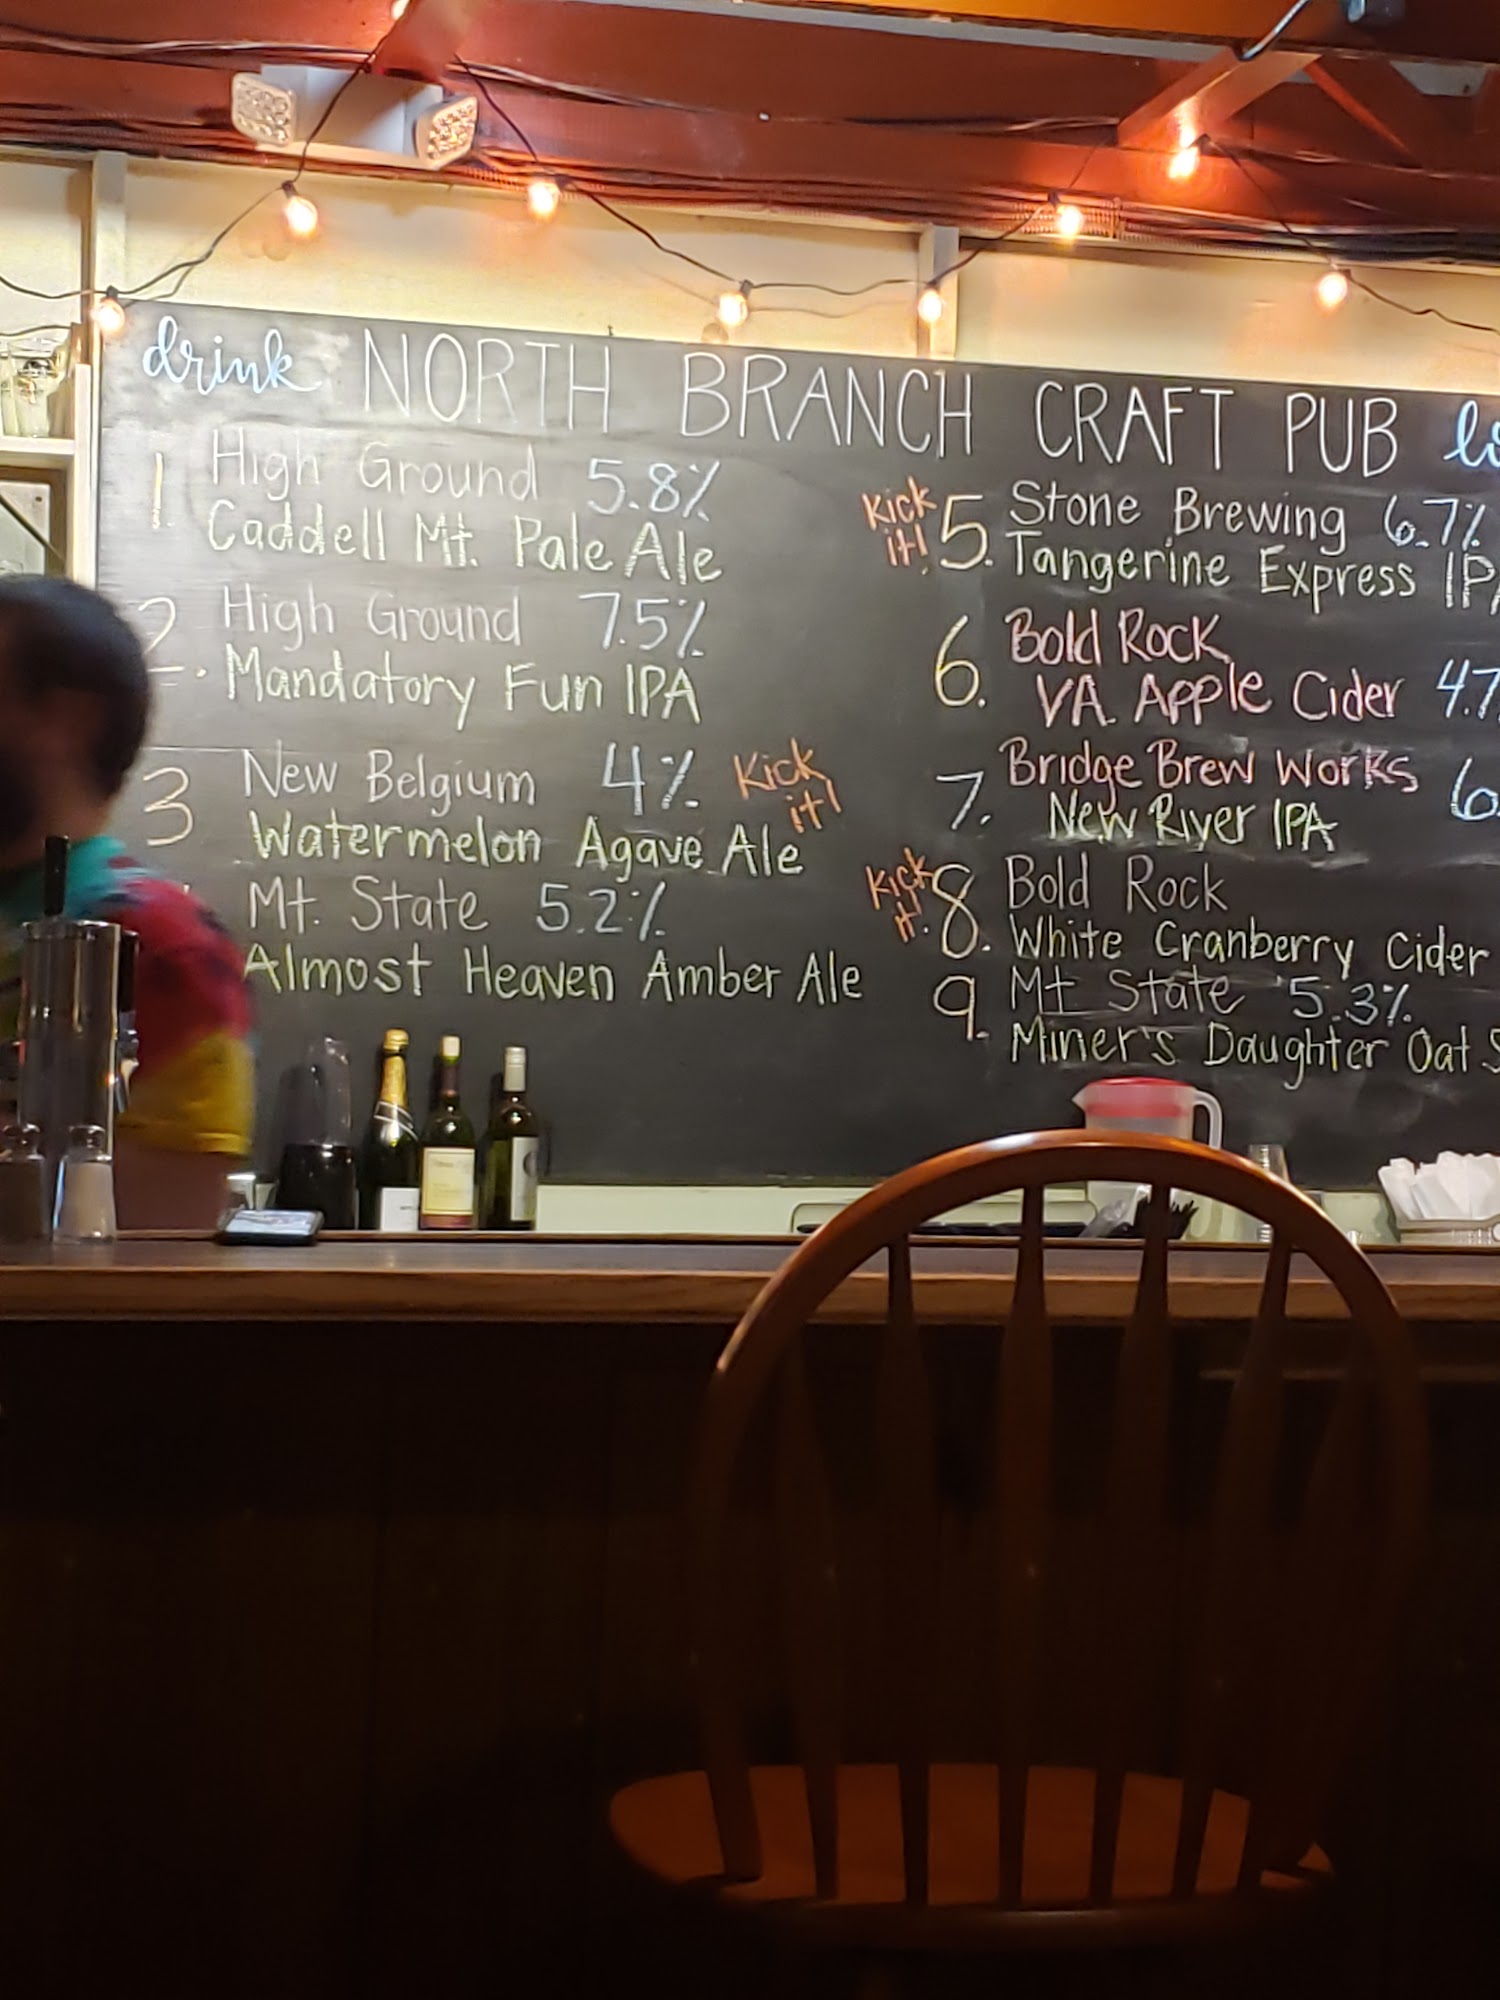 drink NORTH BRANCH CRAFT PUB
1. High Ground 5.8%
Caddell Mt. Pale Ale
2. High Ground 7.5%
Mandatory Fun IPA
3 New Belgium 4% Kick it!
Watermelon Agave Ale
Mt. State 5.2%
Almost Heaven Amber Ale
Kick it! 5. Stone Brewing 6.7%
Tangerine Express IPA
6. Bold Rock
VA. Apple Cider 4.7
7. Bridge Brew Works 6.
New River IPA
Kick it! 8. Bold Rock
White Cranberry Cider
9. Mt State 5.3%
Miner's Daughter Oat S